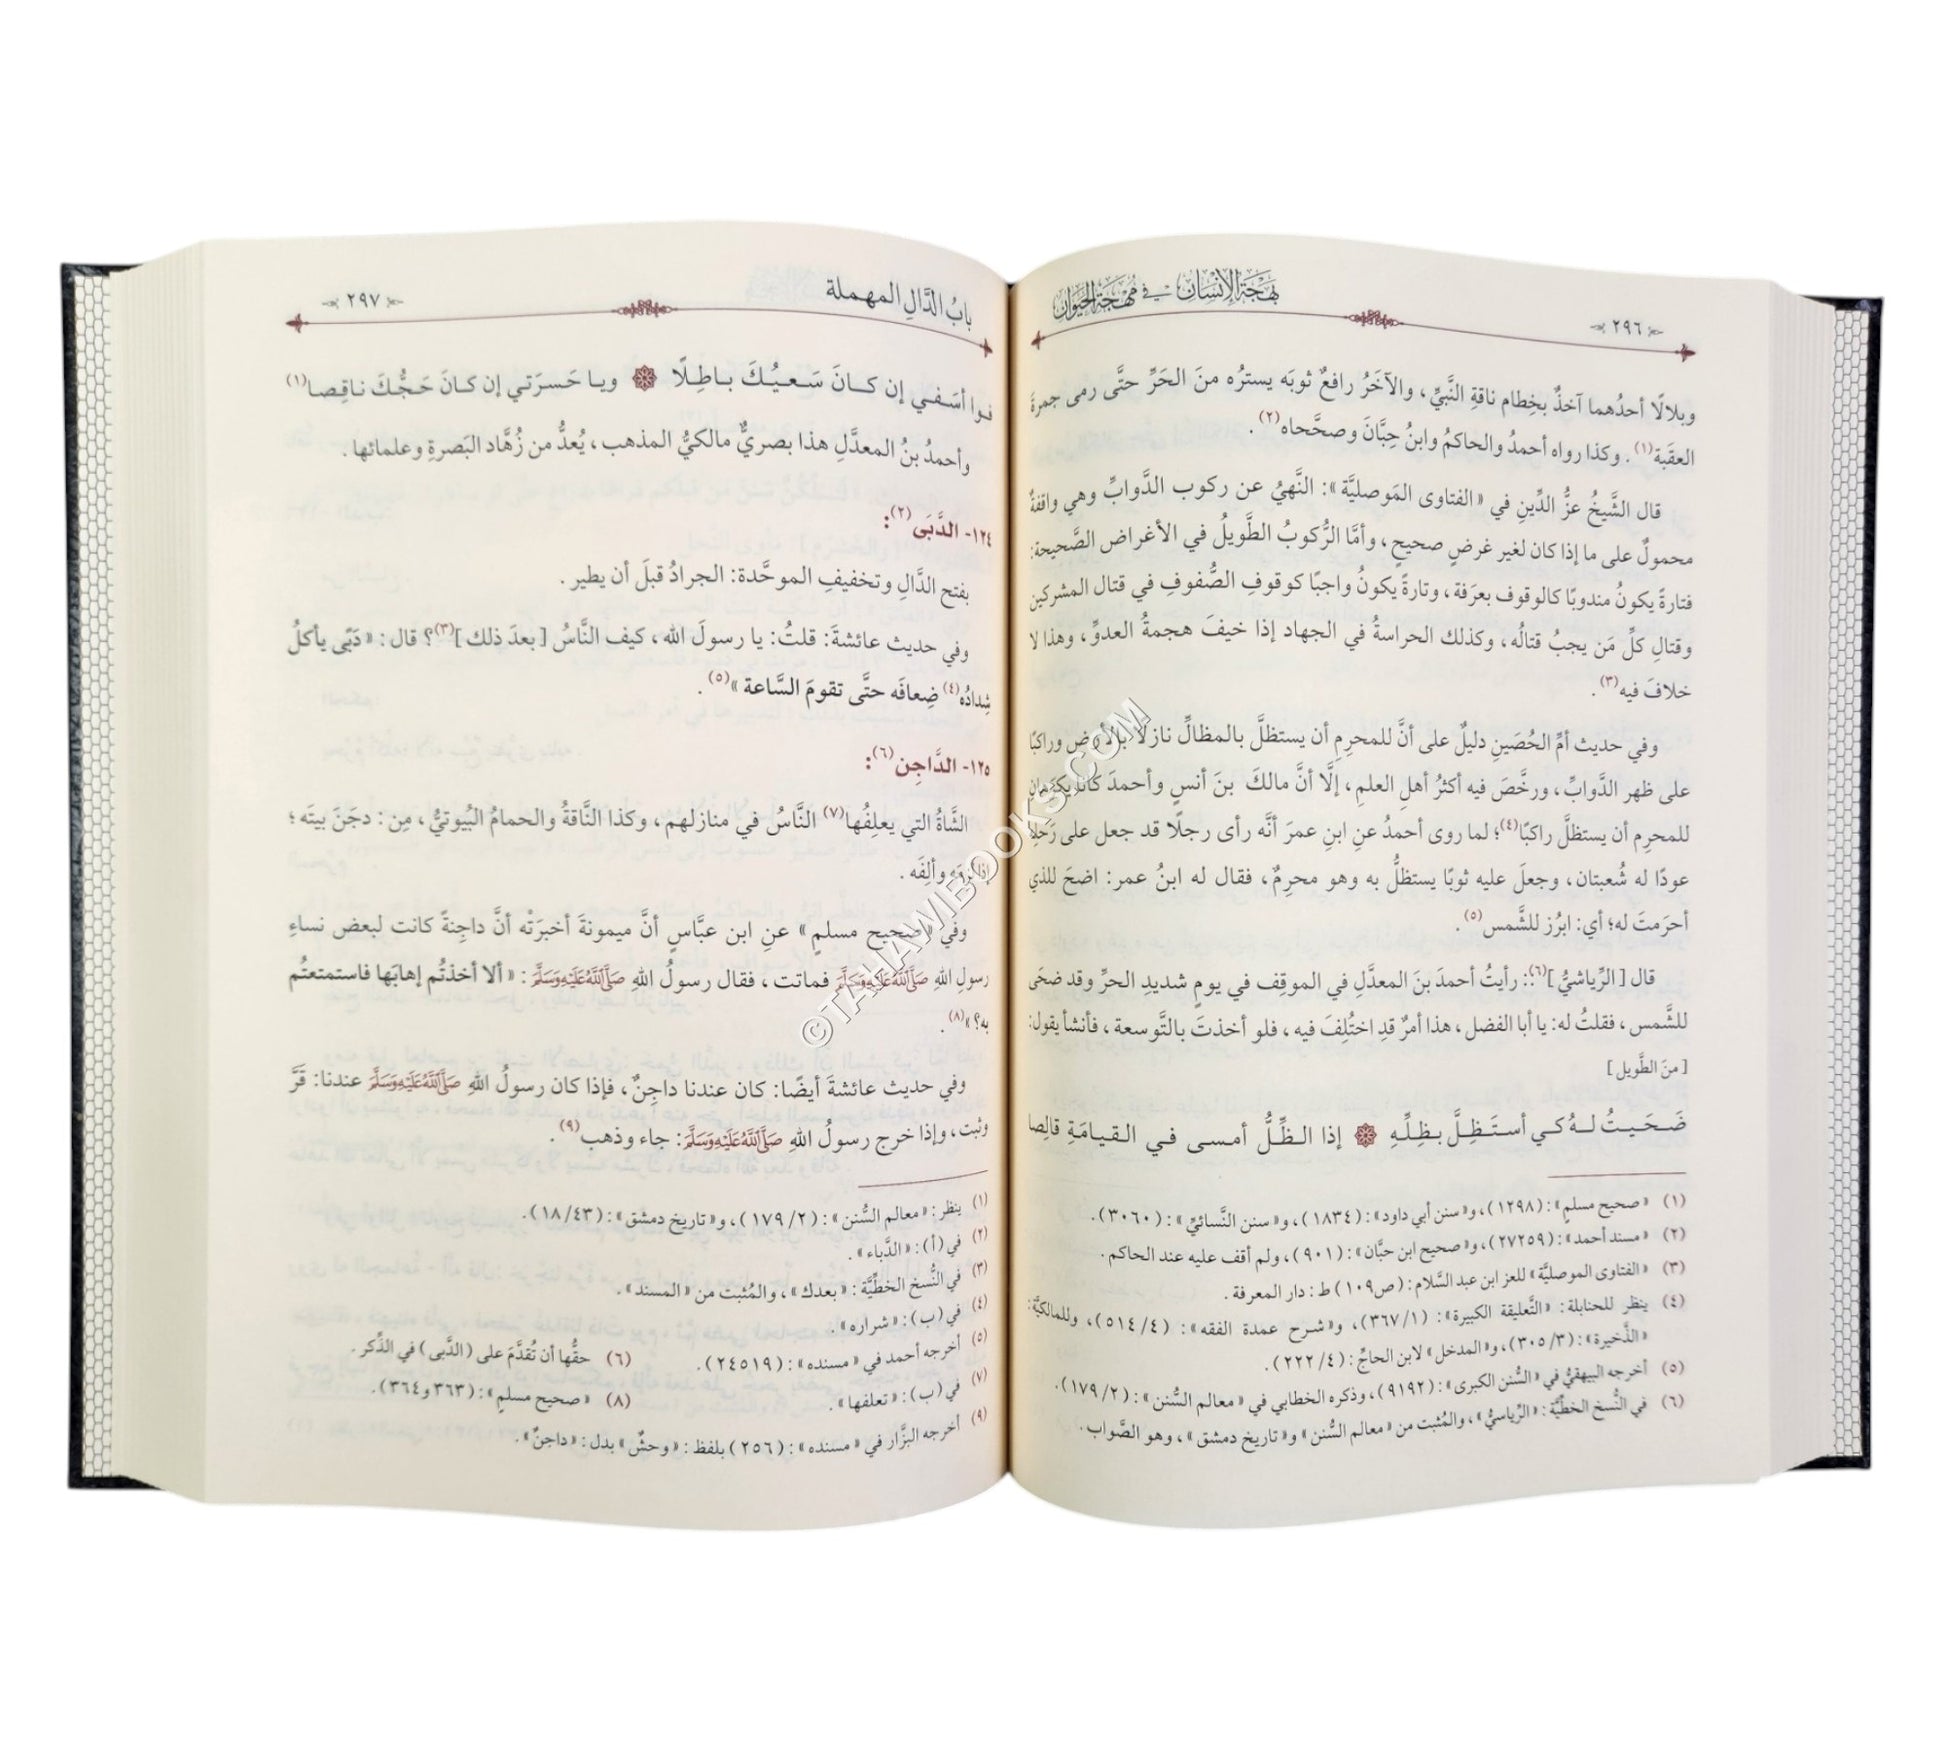 ٢٩٦
بهجة الإنسان في مهجة الحيوان
وبلالًا أحدُهما آخذٌ بخِطام ناقةِ النَّبيِّ، والآخَرُ رافعٌ ثوبَه يسترُه منَ الحَرِّ حتَّى رمى جمرةَ
العقَبة(١). وكذا رواه أحمدُ والحاكمُ وابنُ حِبَّانَ وصحَّحاه(٢).
قال الشَّيخُ عزُّ الدِّينِ في «الفتاوى المَوصليَّة»: النَّهيُ عن ركوب الدَّوابِّ وهي واقفةٌ
محمولٌ على ما إذا كان لغير غرضٍ صحيحٍ، وأمَّا الرُّكوبُ الطَّويلُ في الأغراض الصَّحيحة:
فتارةً يكونُ مندوبًا كالوقوف بعرَفة، وتارةً يكونُ واجبًا كوقوفِ الصُّفوفِ في قتال المشركين
وقتالِ كلِّ مَن يجبُ قتالُه، وكذلك الحراسةُ في الجهاد إذا خيفَ هجمةُ العدوِّ، وهذا لا
خلافَ فيه(٣).
وفي حديث أمِّ الحُصَينِ دليلٌ على أنَّ للمحرِمِ أن يستظلَّ بالمظالِّ نازلًا بالأرض وراكبًا
على ظهر الدَّوابِّ، ورخَّصَ فيه أكثرُ أهلِ العلمِ، إلَّا أنَّ مالكَ بنَ أنسٍ وأحمدَ كانا يكرهانِ
للمحرِم أن يستظلَّ راكبًا(٤)؛ لما روى أحمدُ عنِ ابنِ عمرَ أنَّه رأى رجلًا قد جعل على رَحلِه
عودًا له شُعبتان، وجعلَ عليه ثوبًا يستظلُّ به وهو محرِمٌ، فقال له ابنُ عمر: اضحَ للذي
أحرَمتَ له؛ أي: ابرُز للشَّمس(٥).
قال [الرِّياشيُّ](٦): رأيتُ أحمدَ بنَ المعدَّلِ في الموقِف في يومٍ شديدِ الحرِّ وقد ضحَى
للشَّمس، فقلتُ له: يا أبا الفضل، هذا أمرٌ قدِ اختُلِفَ فيه، فلو أخذتَ بالتَّوسعة، فأنشأ يقول:
[منَ الطَّويل]
ضَحَيتُ لـهُ كي أستَظِلَّ بظِلِّهِ إذا الظِّلُّ أمسى في القيامَةِ قالِصا
(١) «صحيح مسلم»: (١٢٩٨)، و«سنن أبي داود»: (١٨٣٤)، و«سنن النَّسائيِّ»: (٣٠٦٠).
(٢) «مسند أحمد»: (٢٧٢٥٩)، و«صحيح ابن حبَّان»: (٩٠١)، ولم أقف عليه عند الحاكم.
(٣) «الفتاوى الموصليَّة» للعز ابن عبد السَّلام: (ص١٠٩) ط: دار المعرفة.
(٤) ينظر للحنابلة: «التَّعليقة الكبيرة»: (٣٦٧/١)، و«شرح عمدة الفقه»: (٥١٤/٤)، وللمالكيَّة:
«الذَّخيرة»: (٣٠٥/٣)، و«المدخل» لابن الحاجِّ: (٢٢٢/٤).
(٥) أخرجه البيهقيُّ في «السُّنن الكبرى»: (٩١٩٢)، وذكره الخطابي في «معالم السُّنن»: (١٧٩/٢).
(٦) في النُّسخ الخطِّيَّة: «الرِّياسيُّ»، والمُثبت من «معالم السُّنن» و«تاريخ دمشق»، وهو الصَّواب.
بابُ الدَّالِ المهملة
٢٩٧
فـوا أسَـفـي إن كــانَ سَـعـيُـكَ بـاطِـلًا ويـا حَـسرَتي إن كـانَ حَـجُّكَ نـاقِـصا(١)
وأحمدُ بنُ المعدَّلِ هذا بصريٌّ مالكيُّ المذهب، يُعدُّ من زُهَّاد البَصرةِ وعلمائها.
١٢٤- الدَّبَى(٢):
بفتح الدَّالِ وتخفيفِ الموحَّدة: الجرادُ قبلَ أن يطير.
وفي حديث عائشةَ: قلتُ: يا رسولَ الله، كيف النَّاسُ [بعدَ ذلك](٣)؟ قال: «دَبًى يأكلُ
شِدادُه(٤) ضِعافَه حتَّى تقومَ السَّاعة»(٥).
١٢٥- الدَّاجِن(٦):
الشَّاةُ التي يعلِفُها(٧) النَّاسُ في منازلهم، وكذا النَّاقةُ والحمامُ البُيوتيُّ، مِن: دجَنَ بيتَه؛
إذا لزمَه وألِفَه.
وفي «صحيح مسلمٍ» عنِ ابن عبَّاسٍ أنَّ ميمونةَ أخبرَتْه أنَّ داجِنةً كانت لبعض نساءِ
رسولِ اللهِ صَلَّى اللهُ عَلَيْهِ وَسَلَّمَ فماتت، فقال رسولُ اللهِ صَلَّى اللهُ عَلَيْهِ وَسَلَّمَ: «ألا أخذتُم إهابَها فاستمتعتُم
به؟»(٨).
وفي حديث عائشةَ أيضًا: كان عندنا داجِنٌ، فإذا كان رسولُ اللهِ صَلَّى اللهُ عَلَيْهِ وَسَلَّمَ عندنا: قَرَّ
وثبت، وإذا خرج رسولُ اللهِ صَلَّى اللهُ عَلَيْهِ وَسَلَّمَ: جاء وذهب(٩).
(١) ينظر: «معالم السُّنن»: (١٧٩/٢)، و«تاريخ دمشق»: (١٨/٤٣).
(٢) في (أ): «الدَّباء».
(٣) في النُّسخ الخطِّيَّة: «بعدك»، والمُثبت من «المسند».
(٤) في (ب): «شراره».
(٥) أخرجه أحمد في «مسنده»: (٢٤٥١٩). (٦) حقُّها أن تُقدَّمَ على (الدَّبى) في الذِّكر.
(٧) في (ب): «تعلفها». (٨) «صحيح مسلم»: (٣٦٣ و٣٦٤).
(٩) أخرجه البزَّار في «مسنده»: (٢٥٦) بلفظ: «وحشٌ» بدل: «داجنٌ».
©TAHAWIBOOKS.COM